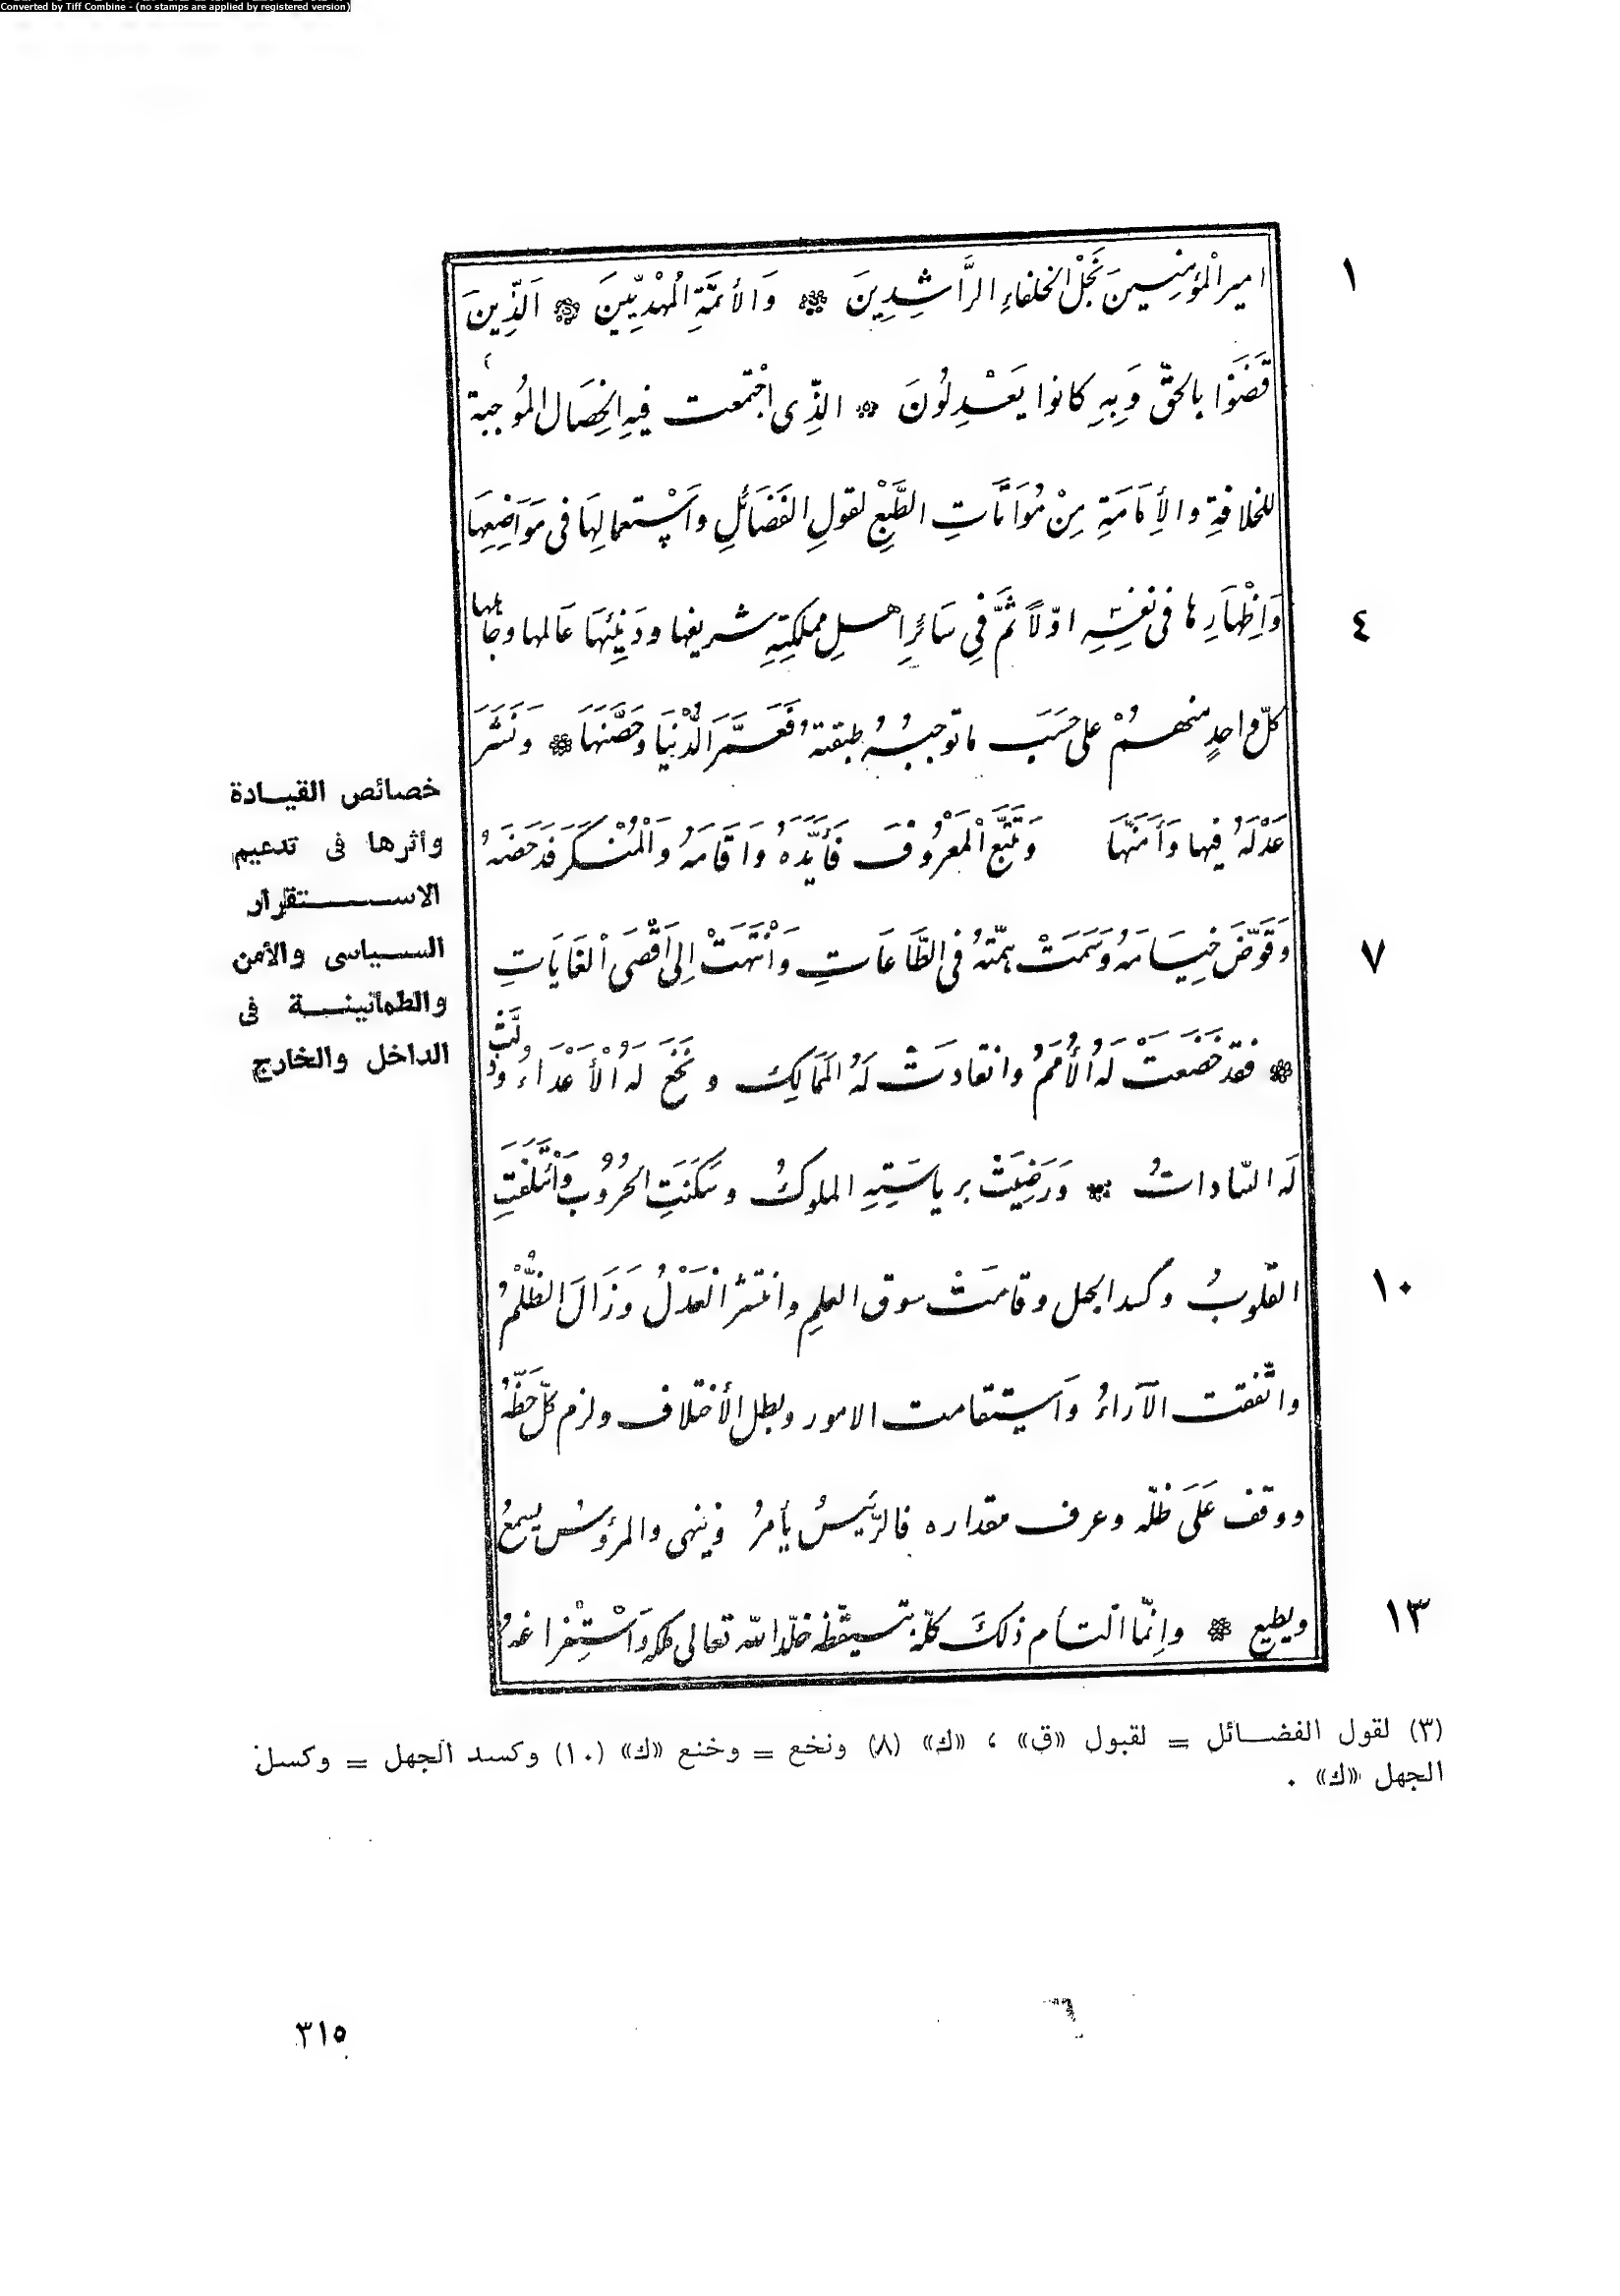 Converted by Tiff Combine - (no stamps are applied by registered version)
١
امير الْمُؤمِنِـينَ نَجْلُ الخلفاءِ الرَّاشِدِينَ ۞ وَالأئمَّةِ الْمُهْدِيِّينَ ۞ اَلَّذِينَ
قَضَوْا بالحَقّ وَبِهِ كانوا يَعْدِلُونَ ۞ الذِّى اجْتمعت فِيهِ الخِصَال المُوجبة
للخلافةِ والأِمَامَةِ مِنْ مُوَاتَاتِ الطَّبْعِ لقولِ الفَضَائلِ واَسْتعمالِهَا فى مَوَاضِعِهَا
٤
وَاِظْهَارِها فى نفسِهِ اوّلاً ثُمَّ فِي سَائرِ اهلِ مملكتِهِ شريفها ودَنِيئِهَا عَالمها وجَاهلها
كلّ واحدٍ منهمُْ على حَسَبَ ماتوجبُهُ طبقتهُ فَعَمَّرَ الدُّنْيَا وحَصَّنَهَا ۞ وَنَشَرَ
عَدْلَهُ فيها وَأَمَنَّهَا وَتَتَبَّعَ الْمَعْرُوفَ فَأَيَّدَهُ وَاَقَامَهُ وَالْمُنْكَرَ فَدَحَضَهُ
٧
وَقَوّضَ خِيَامَهُ وَسَمَتْ همّتهُ فى الطَّاعَاتِ وَانْتَهَتْ اِلىَ اَقْصَى اَلْغَايَاتِ
۞ فقد خَضَعَتْ لَهُ الأُمَمُ وانقادَتْ لَهُ المَمَالِكِ ونَخَعَ لَهُ الْأَعْدَاءُ وذلَّتْ
لَه السّاداتُ ۞ وَرَضِيَتْ برياسَتِهِ الملوكُ وسَكَنَتِ الحُرُوُبُ وَائْتَلَفَتِ
١٠
القلوبُ وكسد الجهل وقامَتْ سوق العلمِ وانتشرَ الْعَدْلُ وَزَالَ الظُّلْمُ
واتّفقت الآرَاءُ وَاَستقامت الامور وبطل الأختلاف ولزم كلّ حَظَّهُ
ووقف عَلَى ظلّه وعرف مقداره فالرَّئِيسُ يأمرُ وينهى والمرؤسُ يسمعُ
١٣
ويطيع ۞ وانِمّا التأم ذلكَ كلّه بتيقّظه خلّد الله تعالى ملكه وَاَسْتِفراغهُ
خصائص القيادة
وأثرها فى تدعيم
الاستقرار
السياسى والأمن
والطمانينة فى
الداخل والخارج
(٣) لقول الفضائل = لقبول «ق» ، «ك» (٨) ونخع = وخنع «ك» (١٠) وكسد الجهل = وكسل
الجهل «ك» .
٣١٥